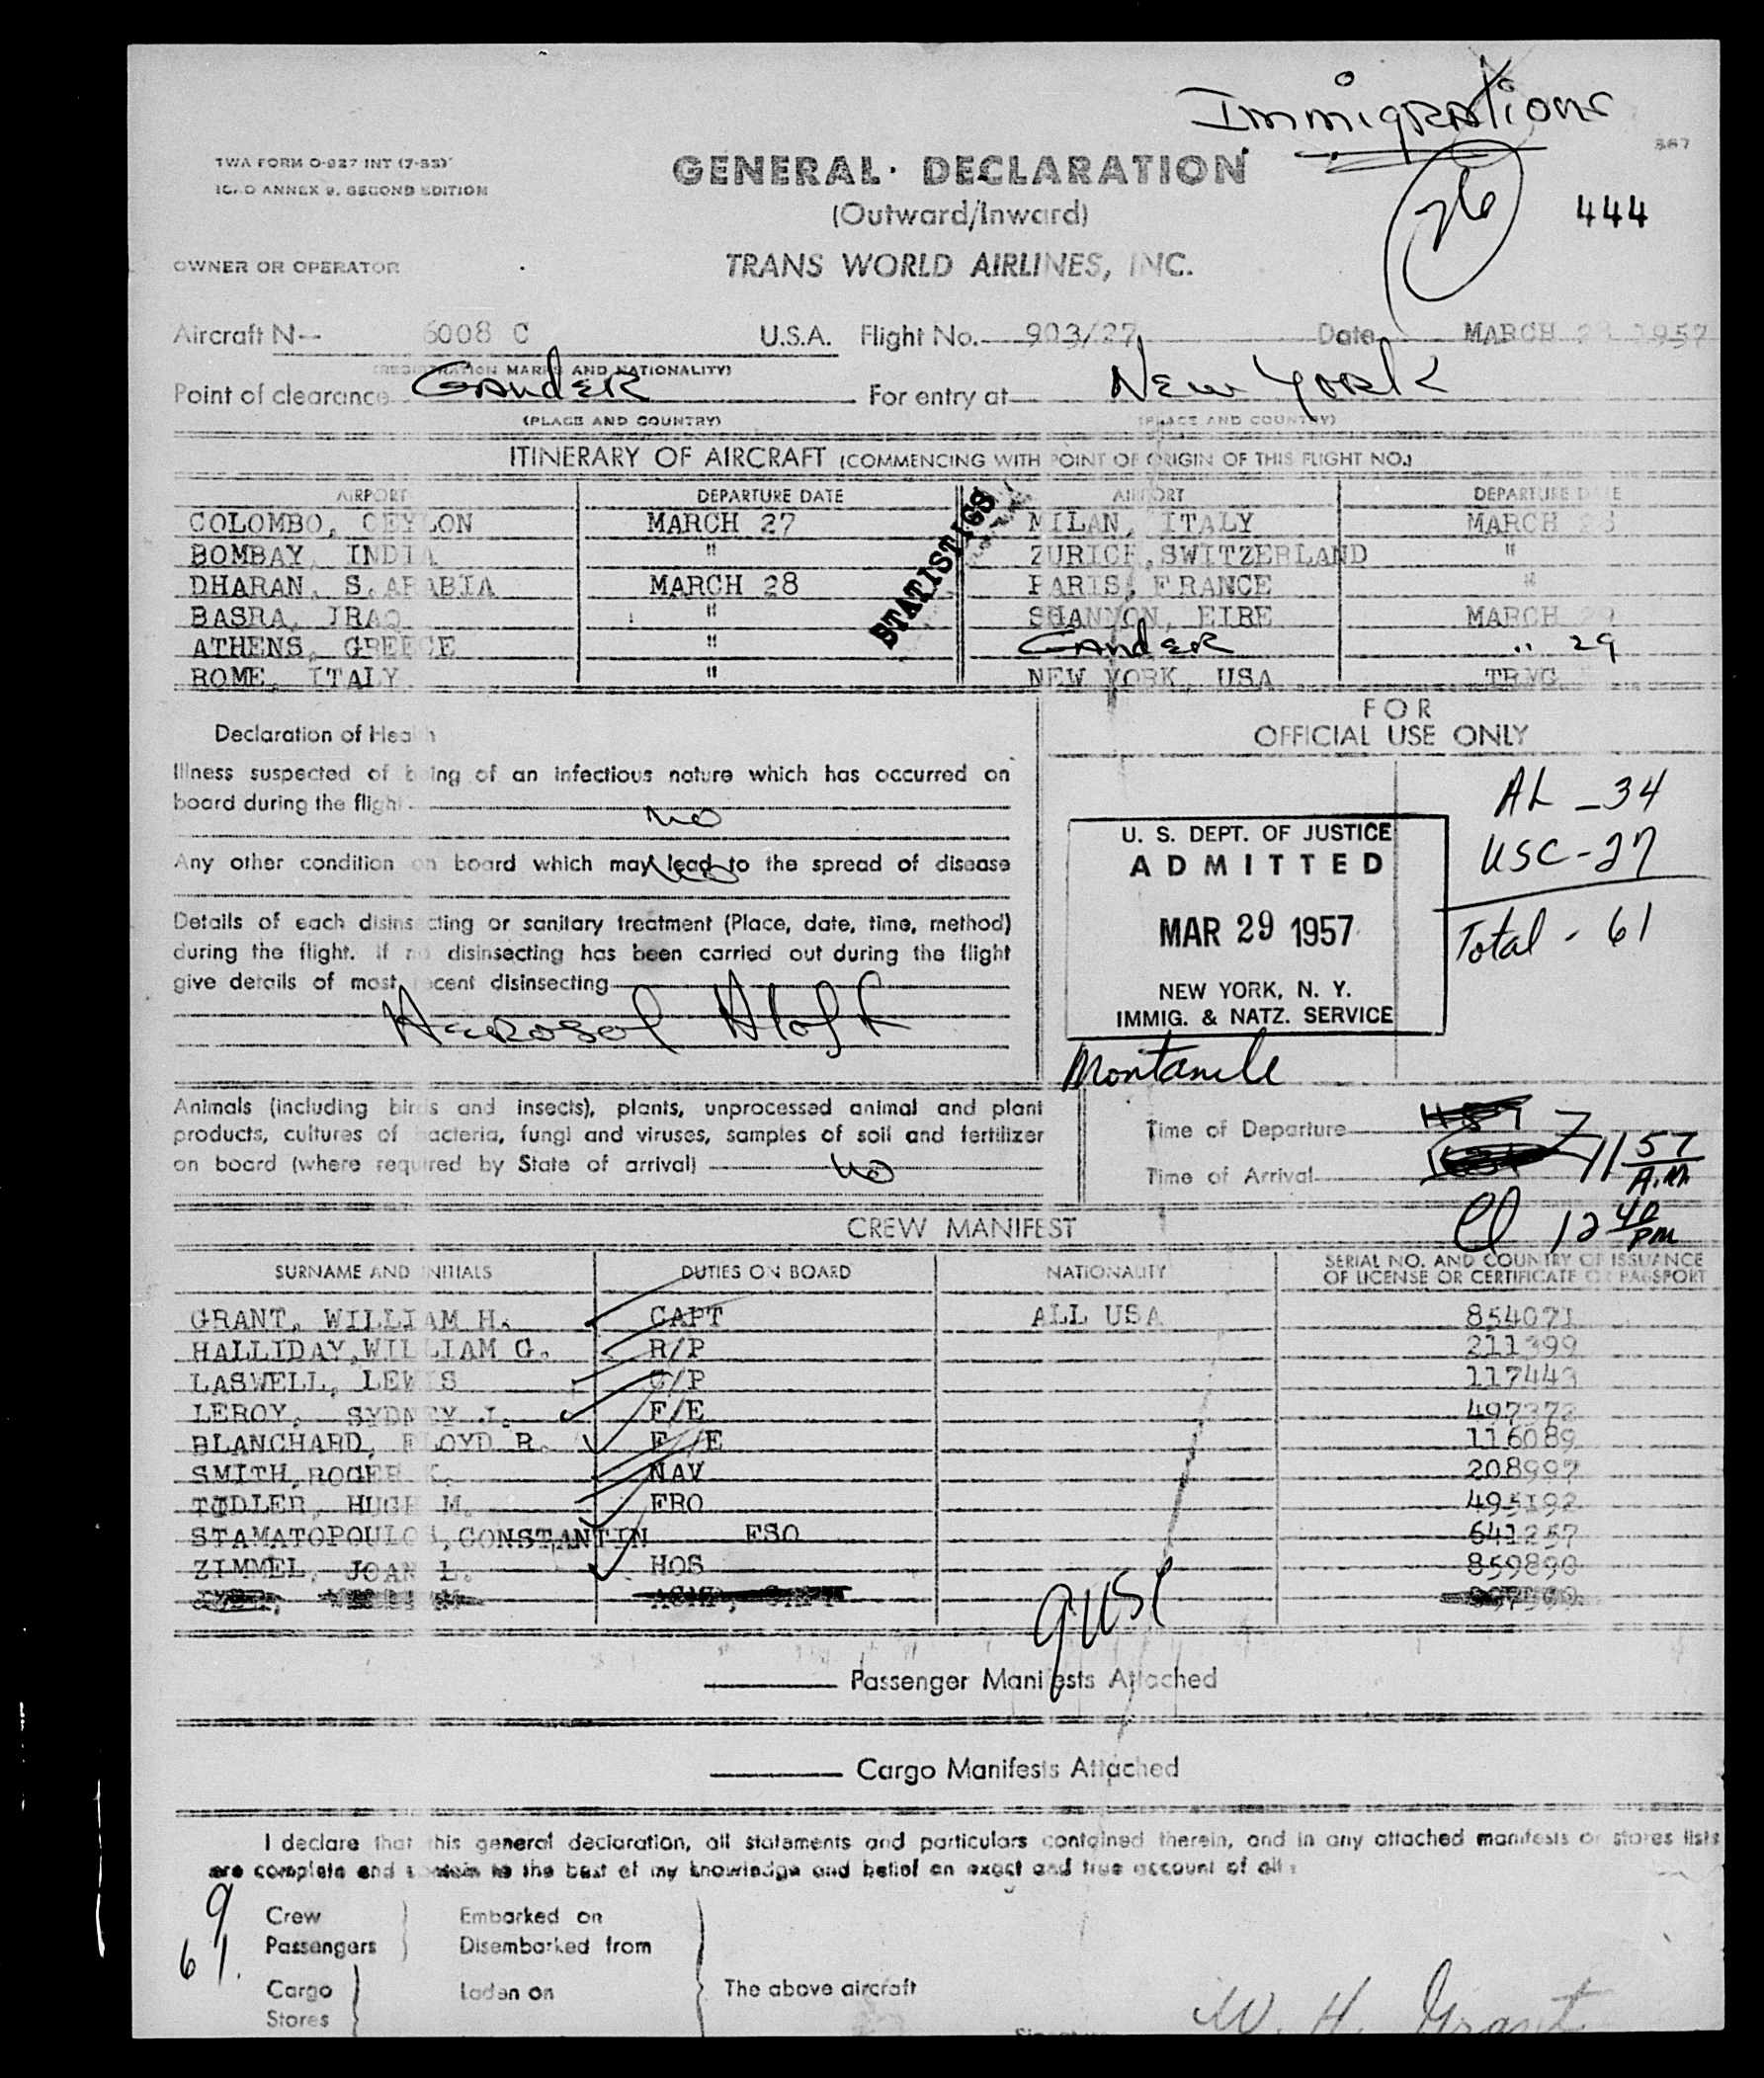 Immigrations
567
TWA FORM O-927 INT (7-53)
ICAO ANNEX 9, SECOND EDITION
GENERAL DECLARATION
(Outward/Inward)
26
444
OWNER OR OPERATOR
TRANS WORLD AIRLINES, INC.
Aircraft N-- 6008 C U.S.A. Flight No. 903/27 Date MARCH 1957
(REGISTRATION MARKS AND NATIONALITY)
Point of clearance Gander For entry at New York
(PLACE AND COUNTRY) (PLACE AND COUNTRY)
ITINERARY OF AIRCRAFT (COMMENCING WITH POINT OF ORIGIN OF THIS FLIGHT NO.)
AIRPORT DEPARTURE DATE AIRPORT DEPARTURE DATE
COLOMBO, CEYLON MARCH 27 MILAN, ITALY MARCH
BOMBAY, INDIA " ZURICH, SWITZERLAND "
DHARAN, S. ARABIA MARCH 28 PARIS, FRANCE "
BASRA, IRAQ " SHANNON, EIRE MARCH
ATHENS, GREECE " Gander " 29
ROME, ITALY " NEW YORK, USA TRMG
STATISTICS
Declaration of Health
FOR
OFFICIAL USE ONLY
Illness suspected of being of an infectious nature which has occurred on
board during the flight
no
Any other condition on board which may lead to the spread of disease
no
Details of each disinsecting or sanitary treatment (Place, date, time, method)
during the flight. If no disinsecting has been carried out during the flight
give details of most recent disinsecting
Aerosol Aloft
AL - 34
USC - 27
Total - 61
U. S. DEPT. OF JUSTICE
ADMITTED
MAR 29 1957
NEW YORK, N. Y.
IMMIG. & NATZ. SERVICE
Animals (including birds and insects), plants, unprocessed animal and plant
products, cultures of bacteria, fungi and viruses, samples of soil and fertilizer
on board (where required by State of arrival) no
Time of Departure
Time of Arrival 11 57 A.M.
12 40 PM
CREW MANIFEST
SURNAME AND INITIALS DUTIES ON BOARD NATIONALITY SERIAL NO. AND COUNTRY OF ISSUANCE
OF LICENSE OR CERTIFICATE OR PASSPORT
GRANT, WILLIAM H. CAPT ALL USA 854071
HALLIDAY, WILLIAM G. R/P 211399
LASWELL, LEWIS C/P 117443
LEROY, SYDNEY J. F/E 497372
BLANCHARD, FLOYD R. F/E 116089
SMITH, ROGER K. NAV 208997
TUDLER, HUGH M. FRO 495192
STAMATOPOULOS, CONSTANTIN FSO 641257
ZIMMEL, JOAN L. HOS 859890
9 USC
Passenger Manifests Attached
Cargo Manifests Attached
I declare that this general declaration, all statements and particulars contained therein, and in any attached manifests or stores lists
are complete and contain to the best of my knowledge and belief an exact and true account of all
9 Crew Embarked on
61. Passengers Disembarked from
Cargo Laden on The above aircraft
Stores
W. H. Grant